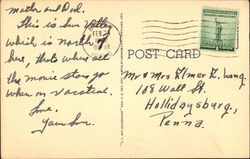 Mother and Dad.
This is Sun Valley
which is north of
here, that's where all
the movie stars go
when on vacation.
Love,
Your Son.
POST CARD
Mr & Mrs Elmer E. Long
108 Wall St.
Hollidaysburg,
Penna.